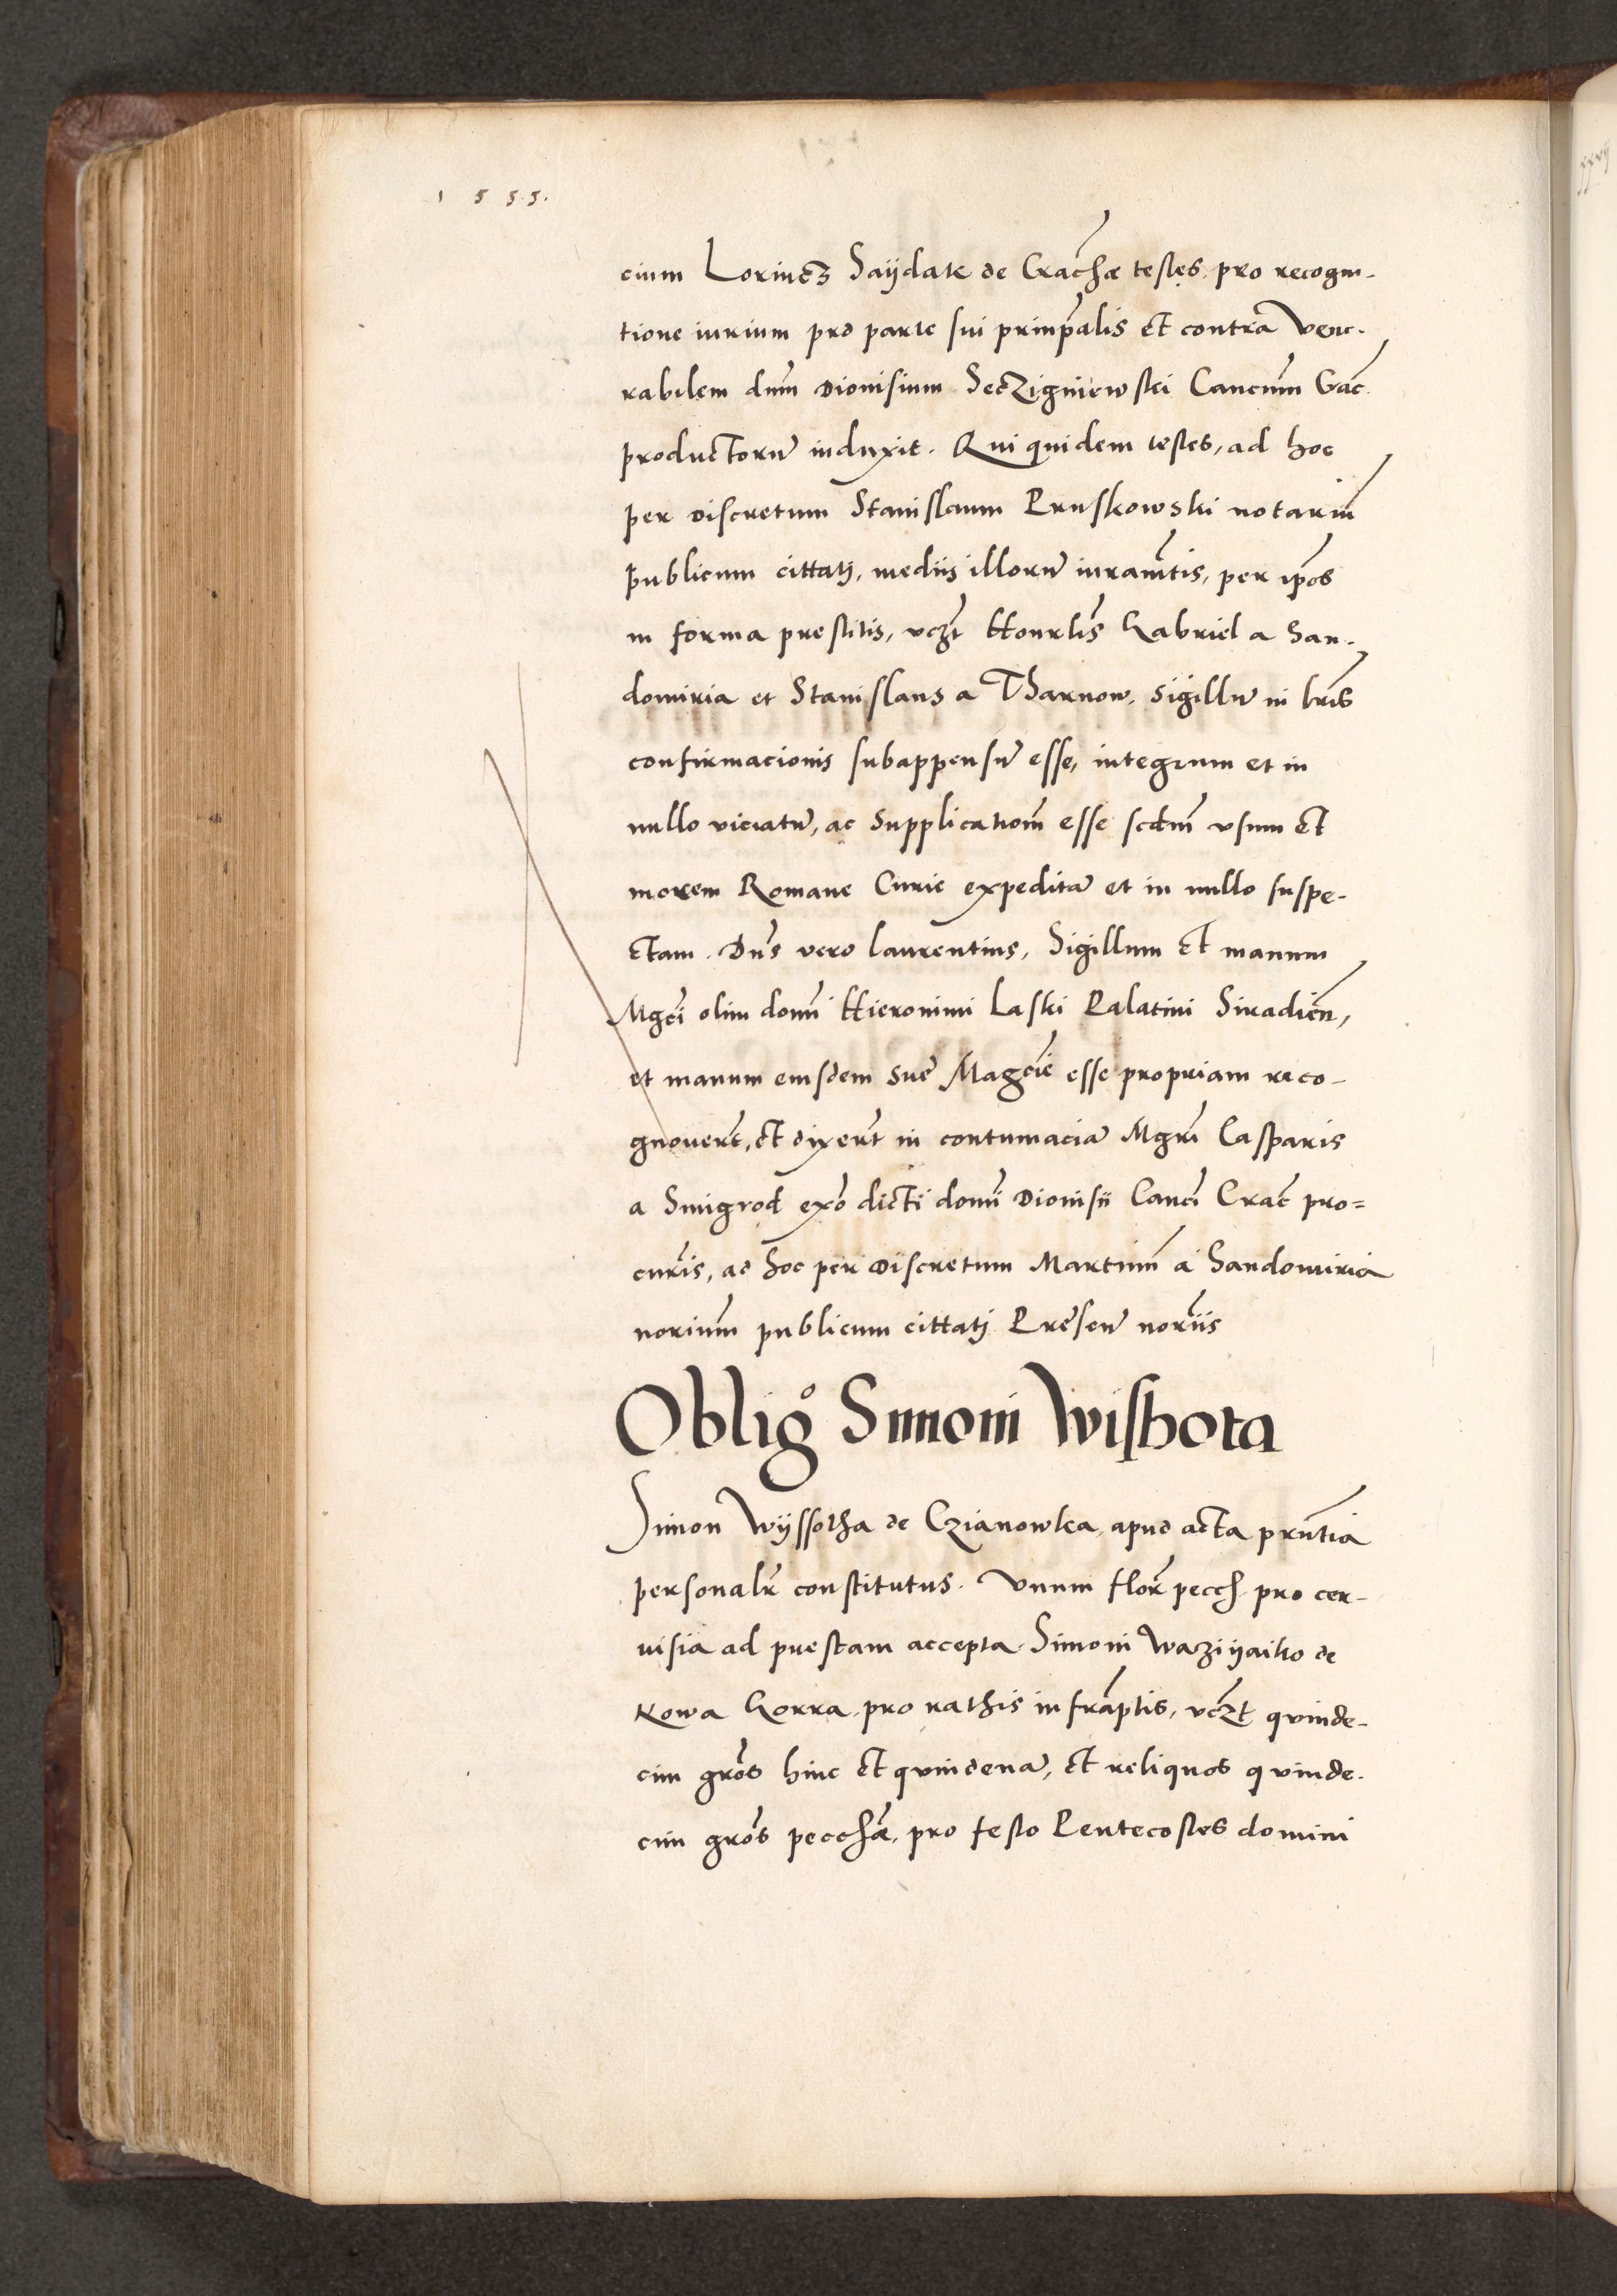 1 5 5 5.
cium Lorincz Saijdak de Cracħae testes pro recogni-
tione iurium pro parte sui prinp̄alis et contra Vene-
rabilem dnm̄ Dionisium Seczigniewski Canc̄um Crac̄
productorum̄ induxit. Qui quidem testes, ad hoc
per discretum Stanislaum Pruskowski notariū
publicum cittatj, mediis illorū iuram̄tis, per ip̄os
in forma prestitis, vczt̄ Honrlis̄ Gabriel a San-
domiria et Stanislaus a Tharnow, sigillū in lrīs
confirmacionis subappensū esse, integrum et in
nullo viciatū, ac supplicationē̄ esse scdm̄ vsum et
morem Romane Curie expeditā et in nullo suspe-
ctam. Dns̄ vero laurentius, Sigillum et manum
Mgcī olim domī Hieronimi Laski Palatini Siradień,
et manum eiusdem sue Magcie̅ esse propriam reco-
gnouerūt, et dixerūt in contumaciā Mgrī Casparis
a Smigrod exō dicti domī Dionisii Cancī Crac̄ pro=
curīs, ad hoc per discretum Martinū a Sandomiria
norium̄ publicum cittatj Presen̄ norīis
Oblig̊ Simoni Wishota
Simon Wijssotha de Czianowka, apud acta prn̄tia
personalr̄ constitutus. Vnum flor̄ pecch pro cer-
uisia ad puestam accepta Simoni Wazijaiko de
Kowa Gorra, pro rathis infrāptis, vczt̄ quinde-
cim grōs hinc et quindenā, et reliquos quinde-
cim grōs pecchāe, pro festo Pentecostes domini